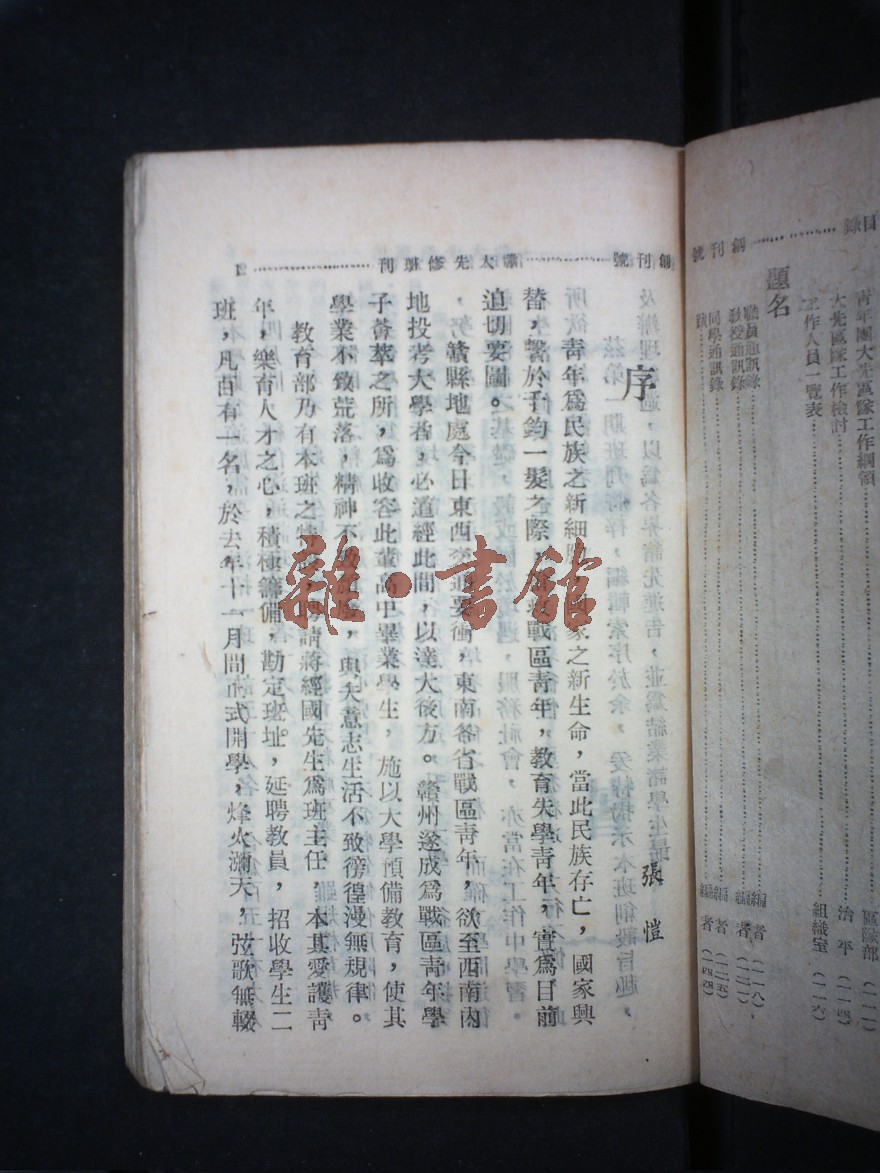 目錄
創刊號
青年團大先區隊工作綱領 區隊部
大先區隊工作檢討 治平(一一四)
工作人員一覽表 組織室(一一六)
題名
職員通訊錄 編者(一一八)
教授通訊錄 編者(一二一)
同學通訊錄 編者(一二五)
跋 編者(一四四)
創刊號
大先修班刊
序
張愷
青年爲民族之新細胞,國家之新生命,當此民族存亡,國家興
替,繫於千鈞一髮之際,戰區青年,教育失學青年,實爲目前
迫切要圖。
贛縣地處今日東西交通要衝,東南各省戰區青年,欲至西南內
地投考大學者,必道經此間,以達大後方。贛州遂成爲戰區青年學
子薈萃之所,爲收容此輩高中畢業學生,施以大學預備教育,使其
學業不致荒落,精神不致,與夫意志生活不致徬徨漫無規律。
教育部乃有本班之特,請蔣經國先生爲班主任,本其愛護青
年,樂育人才之心,積極籌備,勘定班址,延聘教員,招收學生二
班,凡百有一名,於去年十一月間正式開學,烽火瀰天,弦歌無輟
雜·書館